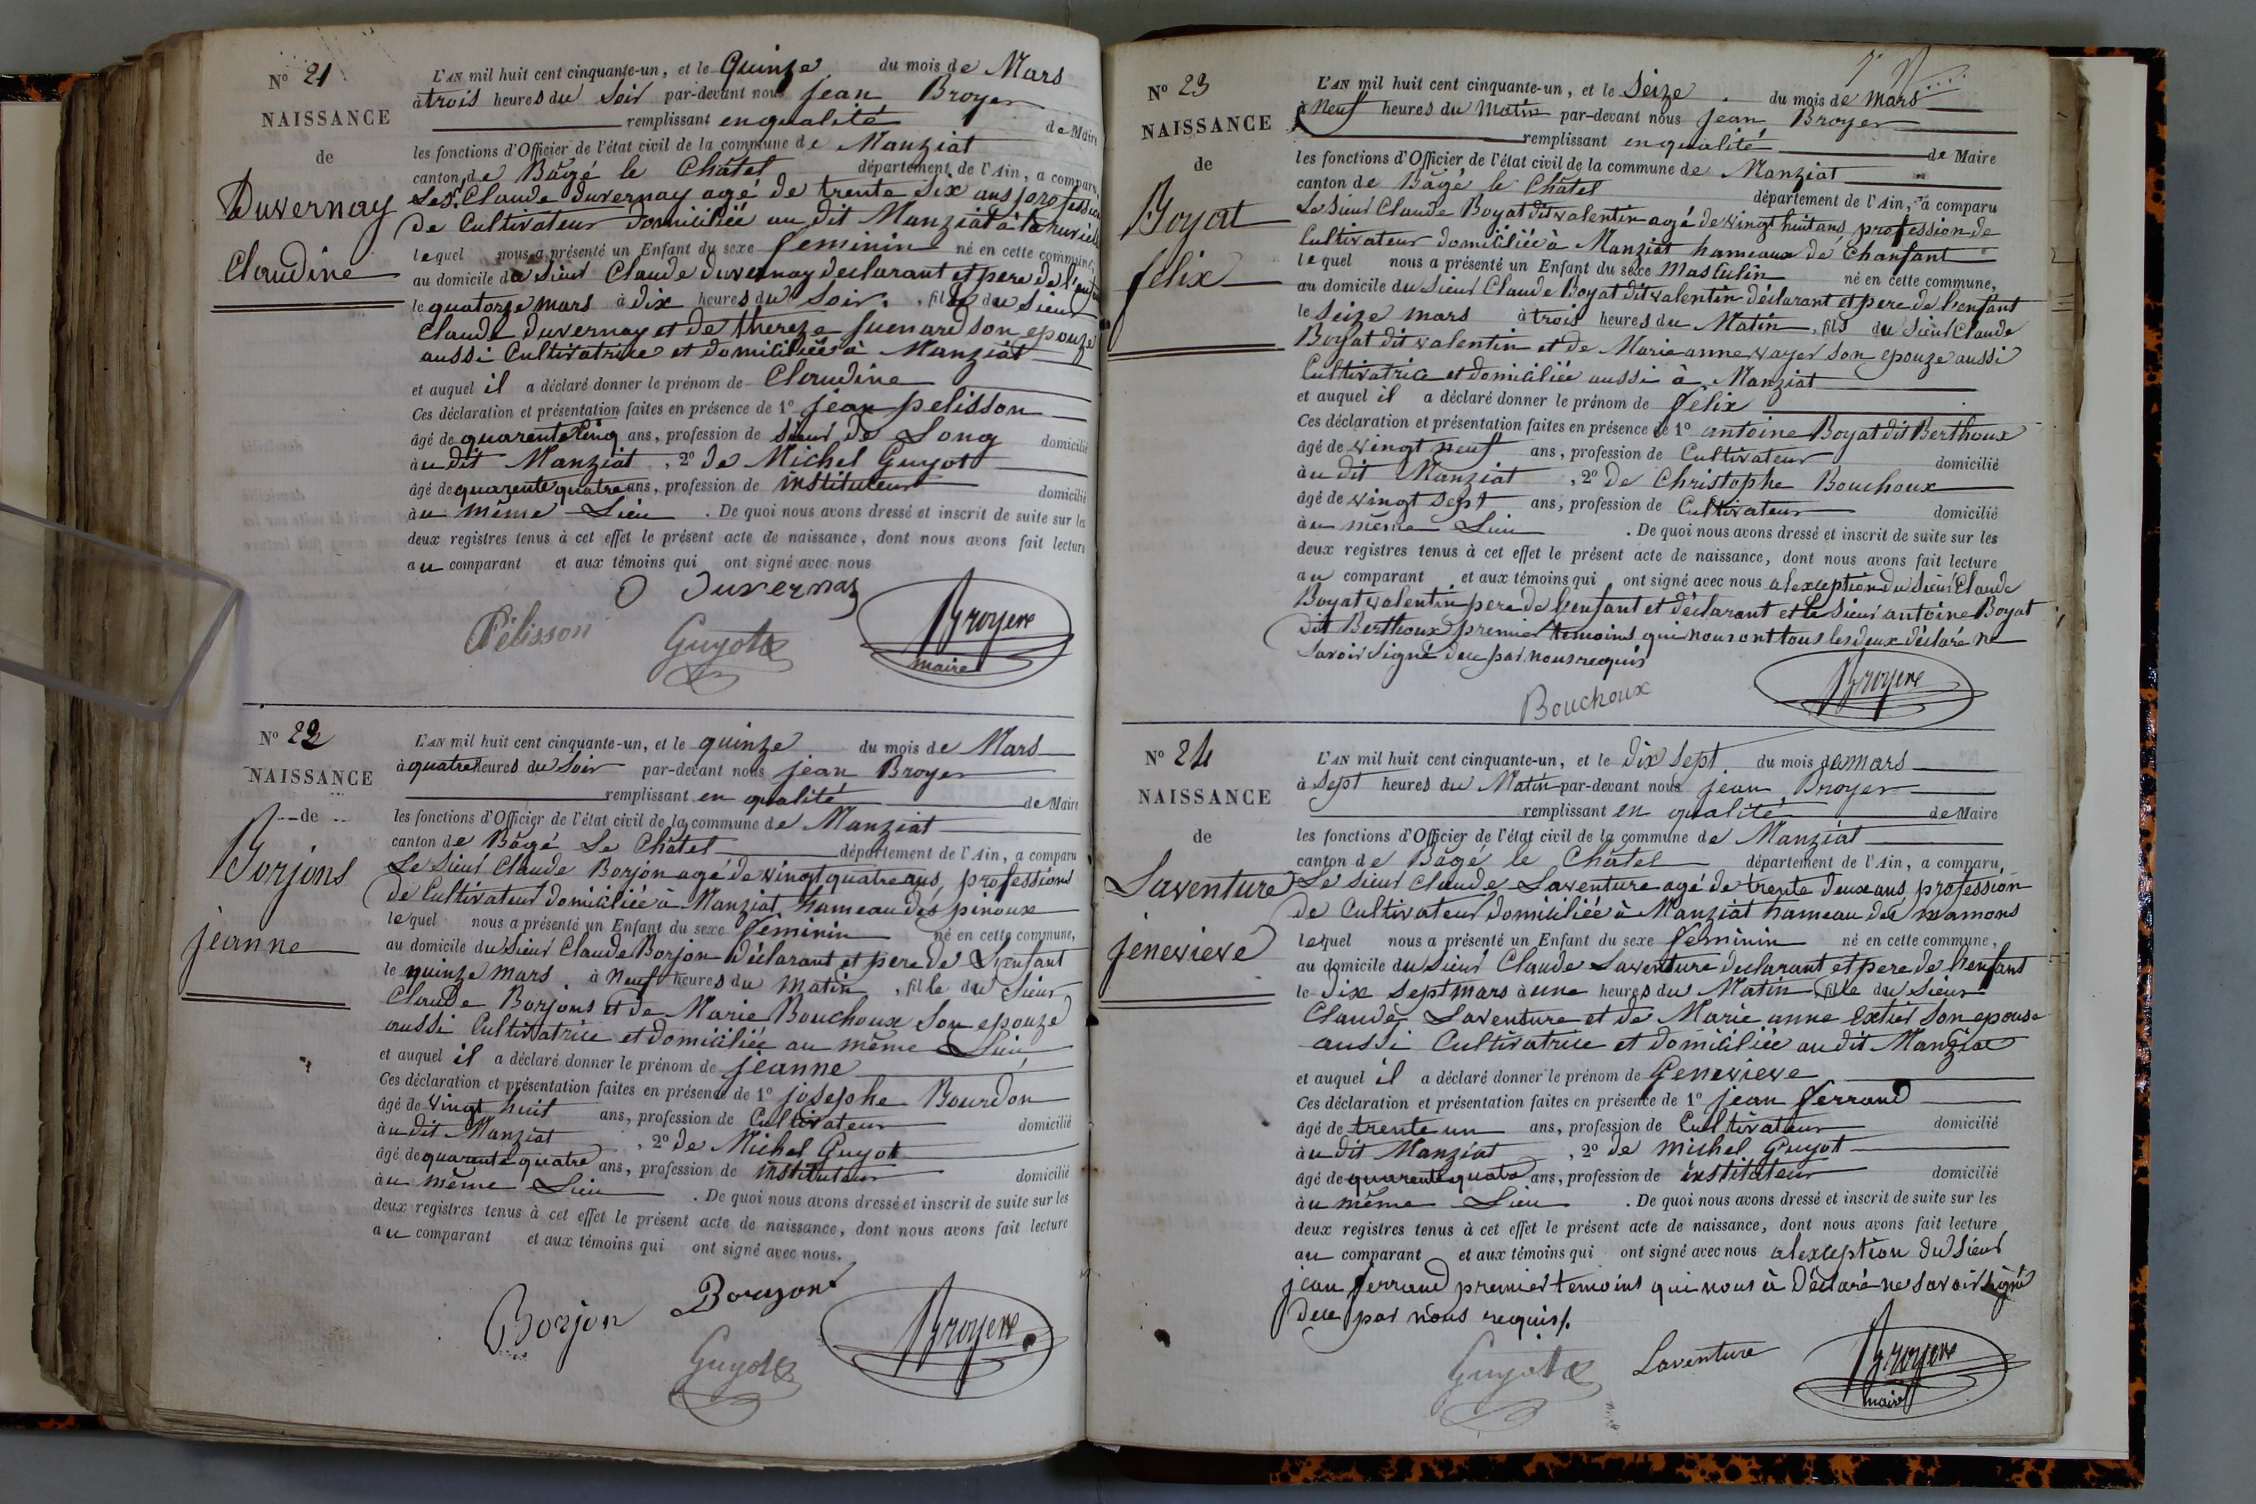 N° 21
NAISSANCE
de
Duvernay
Claudine
L'AN mil huit cent cinquante-un, et le Quinze du mois de Mars
à trois heures du Soir par-devant nous jean Broyer
remplissant en qualité de Maire
les fonctions d'Officier de l'état civil de la commune de Manziat
canton de Bâgé le Châtel département de l'Ain, a comparu
Le Sr. Claude Duvernay agé de trente Six ans profession
de Cultivateur domiciliée au dit Manziat à la
lequel nous a présenté un Enfant du sexe feminin né en cette commune,
au domicile du Sieur Claude duvernay declarant et pere de l'enfant
le quatorze mars à dix heures du Soir, fille du Sieur
Claude Duvernay et de thereze fuenard son epouze
aussi Cultivatrice et domiciliée à Manziat
et auquel il a déclaré donner le prénom de Claudine
Ces déclaration et présentation faites en présence de 1° jean pelisson
âgé de quarente Cinq ans, profession de Sieur de Long domicilié
au dit Manziat, 2° de Michel Guyot
âgé de quarente quatre ans, profession de instituteur domicilié
au même Lieu. De quoi nous avons dressé et inscrit de suite sur les
deux registres tenus à cet effet le présent acte de naissance, dont nous avons fait lecture
au comparant et aux témoins qui ont signé avec nous
Duvernay
Pélisson Guyot Broyer
maire
N° 22
NAISSANCE
de
Borjons
jeanne
L'AN mil huit cent cinquante-un, et le quinze du mois de Mars
à quatre heures du Soir par-devant nous jean Broyer
remplissant en qualité de Maire
les fonctions d'Officier de l'état civil de la commune de Manziat
canton de Bâgé Le Châtel département de l'Ain, a comparu
Le Sieur Claude Borjon agé de vingt quatre ans, profession
de Cultivateur domiciliée à Manziat hameau des pinoux
lequel nous a présenté un Enfant du sexe féminin né en cette commune,
au domicile du Sieur Claude Borjon déclarant et pere de L'enfant
le quinze mars à Neuf heures du matin, fille du Sieur
Claude Borjons et de Marie Bouchoux Son epouze
aussi Cultivatrice et domiciliée au même Lieu
et auquel il a déclaré donner le prénom de jeanne
Ces déclaration et présentation faites en présence de 1° josephe Bourdon
âgé de vingt huit ans, profession de Cultivateur domicilié
au dit Manziat, 2° de Michel Guyot
âgé de quarente quatre ans, profession de instituteur domicilié
au même Lieu. De quoi nous avons dressé et inscrit de suite sur les
deux registres tenus à cet effet le présent acte de naissance, dont nous avons fait lecture
au comparant et aux témoins qui ont signé avec nous.
Borjon
Guyot Broyer
N° 23
NAISSANCE
de
Boyat
félix
L'AN mil huit cent cinquante-un, et le Seize du mois de mars
à Neuf heures du Matin par-devant nous jean Broyer
remplissant en qualité de Maire
les fonctions d'Officier de l'état civil de la commune de Manziat
canton de Bâgé le Châtel département de l'Ain, a comparu
Le Sieur Claude Boyat dit valentin agé de vingt huit ans profession de
Cultivateur domiciliée à Manziat hameaux de Chanfant
lequel nous a présenté un Enfant du sexe Masculin né en cette commune,
au domicile du Sieur Claude Boyat dit valentin déclarant et pere de l'enfant
le Seize mars à trois heures du Matin, fils du Sieur Claude
Boyat dit valentin et de Marie anne vayer son epouze aussi
Cultivatrice et domiciliée aussi à Manziat
et auquel il a déclaré donner le prénom de félix
Ces déclaration et présentation faites en présence de 1° antoine Boyat dit Berthoux
âgé de vingt neuf ans, profession de Cultivateur domicilié
au dit Manziat, 2° de Christophe Bouchoux
âgé de vingt Sept ans, profession de Cultivateur domicilié
au même Lieu. De quoi nous avons dressé et inscrit de suite sur les
deux registres tenus à cet effet le présent acte de naissance, dont nous avons fait lecture
au comparant et aux témoins qui ont signé avec nous alexception du Sieur Claude
Boyat valentin pere de l'enfant et déclarant et le Sieur antoine Boyat
dit Berthoux premier temoins qui nous ont tous les deux déclaré ne
savoir signé deue par nous requis
Bouchoux Broyer
N° 24
NAISSANCE
de
Laventure
jenevieve
L'AN mil huit cent cinquante-un, et le Dix Sept du mois de mars
à Sept heures du Matin par-devant nous jean Broyer
remplissant en qualité de Maire
les fonctions d'Officier de l'état civil de la commune de Manziat
canton de Bâgé le Châtel département de l'Ain, a comparu,
Le Sieur Claude Laventure agé de trente deux ans profession
de Cultivateur domiciliée à Manziat hameau des mamons
lequel nous a présenté un Enfant du sexe feminin né en cette commune,
au domicile du Sieur Claude Laventure declarant et pere de l'enfant
le dix Sept mars à une heures du Matin, fille du Sieur
Claude Laventure et de Marie anne Extier Son epouse
aussi Cultivatrice et domiciliée au dit Manziat
et auquel il a déclaré donner le prénom de Genevieve
Ces déclaration et présentation faites en présence de 1° jean ferrand
âgé de trente un ans, profession de Cultivateur domicilié
au dit Manziat, 2° de michel Guyot
âgé de quarente quatre ans, profession de instituteur domicilié
au même Lieu. De quoi nous avons dressé et inscrit de suite sur les
deux registres tenus à cet effet le présent acte de naissance, dont nous avons fait lecture
au comparant et aux témoins qui ont signé avec nous alexception du Sieur
jean ferrand premier temoins qui nous à déclaré ne savoir signé
deue par nous requis.
Guyot Laventure Broyer
maire